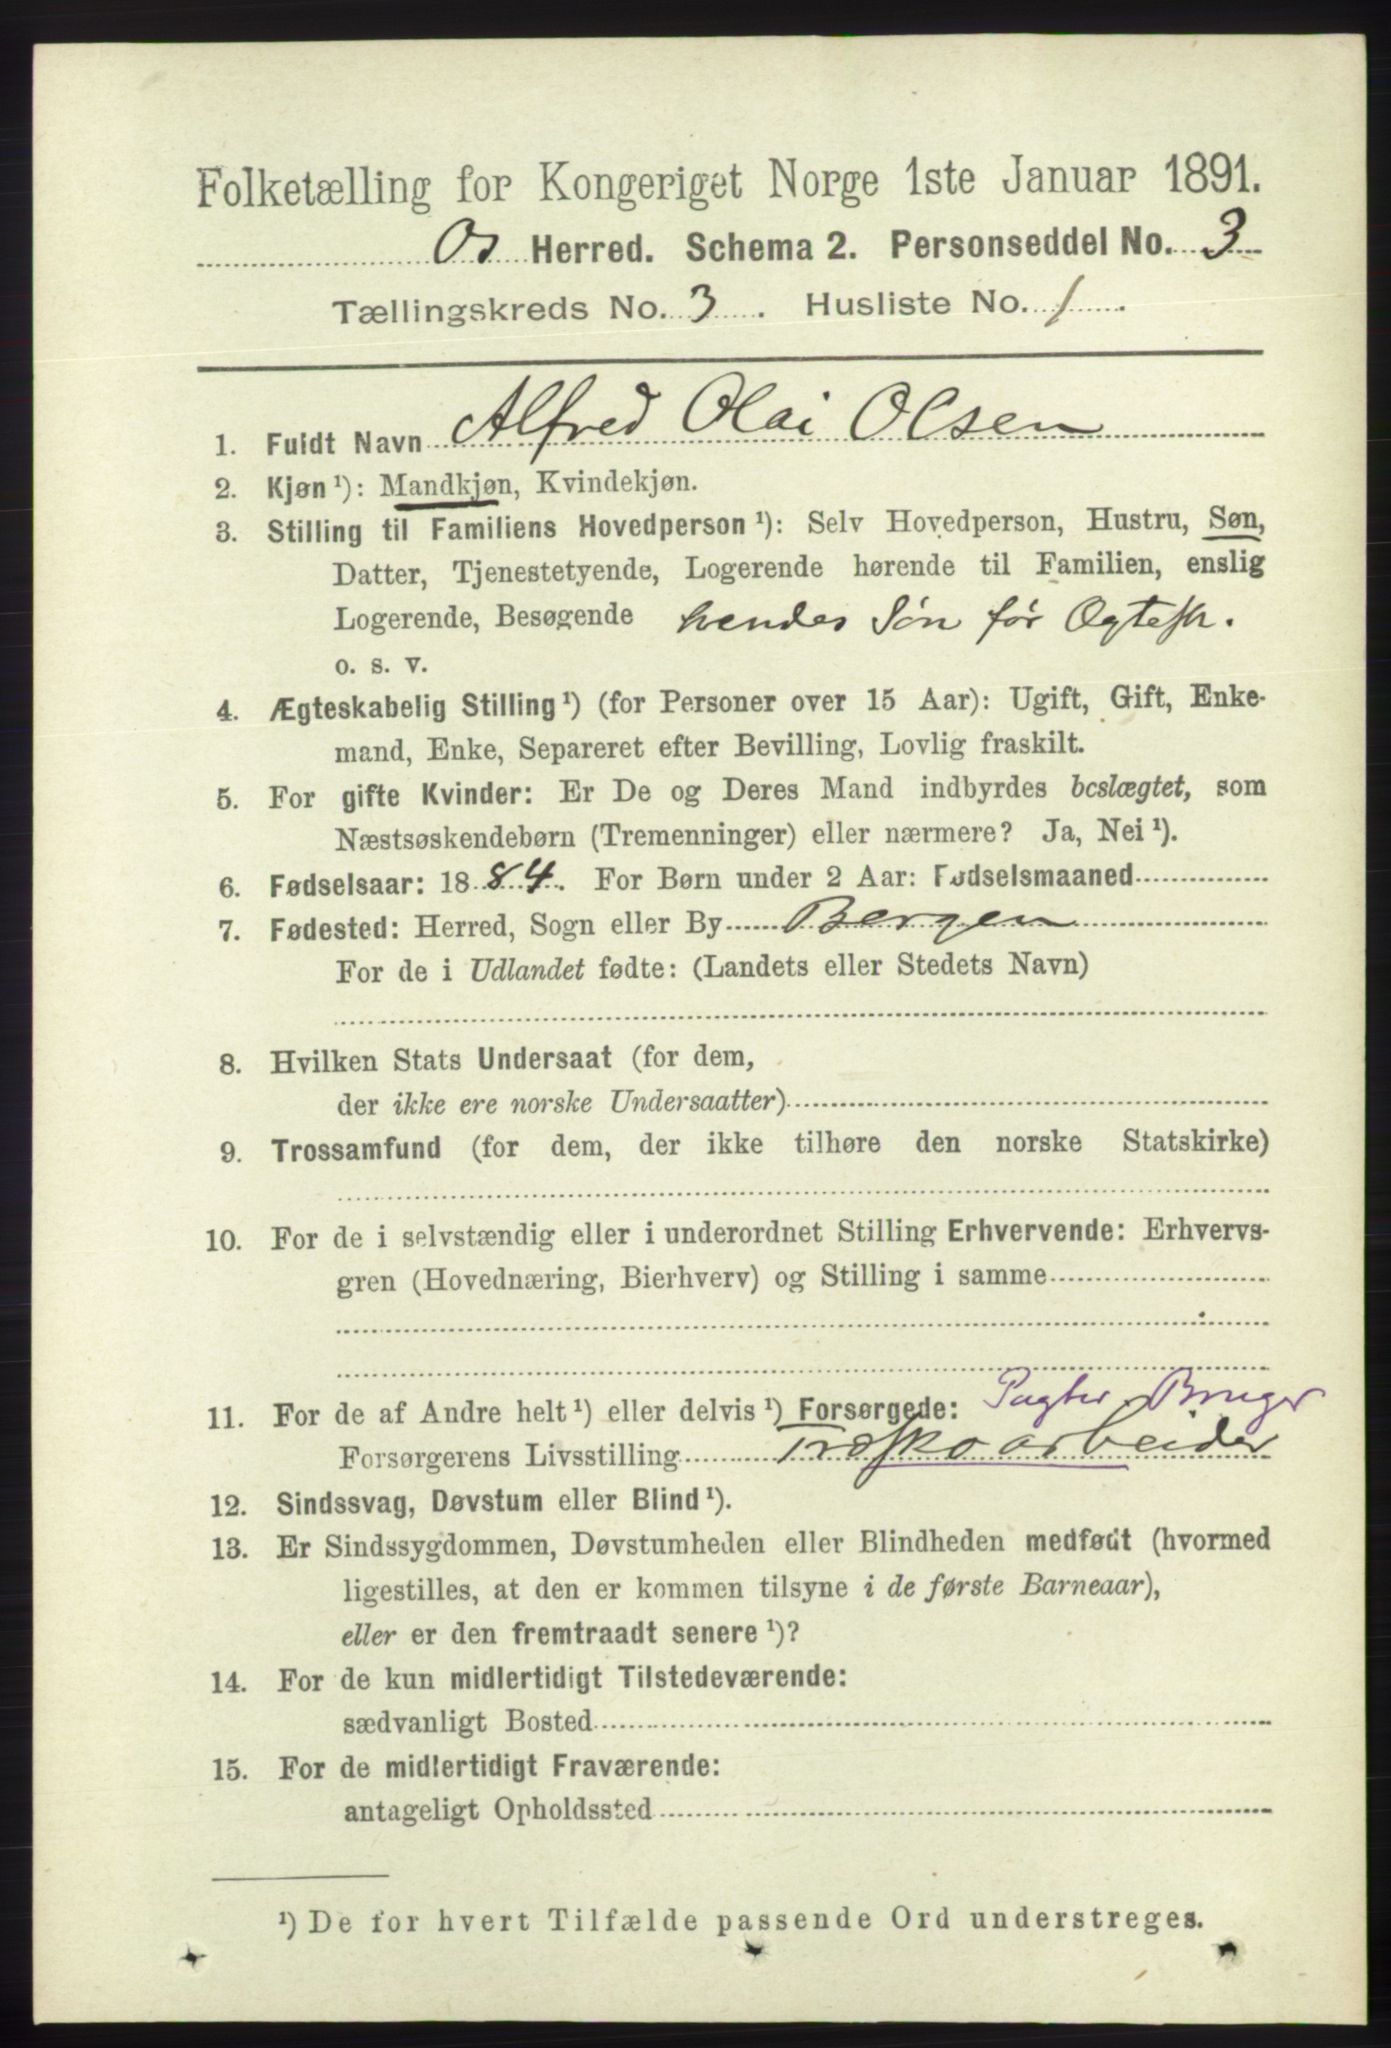 Folketælling for Kongeriget Norge 1ste Januar 1891.
Os Herred. Schema 2. Personseddel No. 3
Tællingskreds No. 3. Husliste No. 1.
1. Fuldt Navn Alfred Olai Olsen
2. Kjøn ¹): Mandkjøn, Kvindekjøn.
3. Stilling til Familiens Hovedperson ¹): Selv Hovedperson, Hustru, Søn,
Datter, Tjenestetyende, Logerende hørende til Familien, enslig
Logerende, Besøgende hendes Søn før Ogtesk.
o. s. v.
4. Ægteskabelig Stilling ¹) (for Personer over 15 Aar): Ugift, Gift, Enke-
mand, Enke, Separeret efter Bevilling, Lovlig fraskilt.
5. For gifte Kvinder: Er De og Deres Mand indbyrdes beslægtet, som
Næstsøskendebørn (Tremenninger) eller nærmere? Ja, Nei ¹).
6. Fødselsaar: 1884. For Børn under 2 Aar: Fødselsmaaned
7. Fødested: Herred, Sogn eller By Bergen
For de i Udlandet fødte: (Landets eller Stedets Navn)
8. Hvilken Stats Undersaat (for dem,
der ikke ere norske Undersaatter)
9. Trossamfund (for dem, der ikke tilhøre den norske Statskirke)
10. For de i selvstændig eller i underordnet Stilling Erhvervende: Erhvervs-
gren (Hovednæring, Bierhverv) og Stilling i samme
Pagter. Bruger
11. For de af Andre helt ¹) eller delvis ¹) Forsørgede:
Forsørgerens Livsstilling Træskoarbeider
12. Sindssvag, Døvstum eller Blind ¹).
13. Er Sindssygdommen, Døvstumheden eller Blindheden medfødt (hvormed
ligestilles, at den er kommen tilsyne i de første Barneaar),
eller er den fremtraadt senere ¹)?
14. For de kun midlertidigt Tilstedeværende:
sædvanligt Bosted
15. For de midlertidigt Fraværende:
antageligt Opholdssted
¹) De for hvert Tilfælde passende Ord understreges.